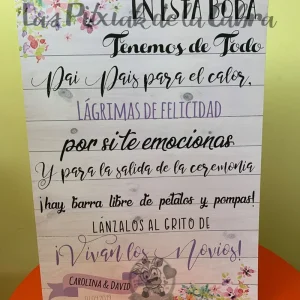 Las Pixiak de la Cabra
EN ESTA BODA
Tenemos de Todo
Pai Pais para el calor,
LÁGRIMAS DE FELICIDAD
por si te emocionas
Y para la salida de la ceremonia
¡hay barra libre de petalos y pompas!
LÁNZALOS AL GRITO DE
¡Vivan los Novios!
CAROLINA & DAVID